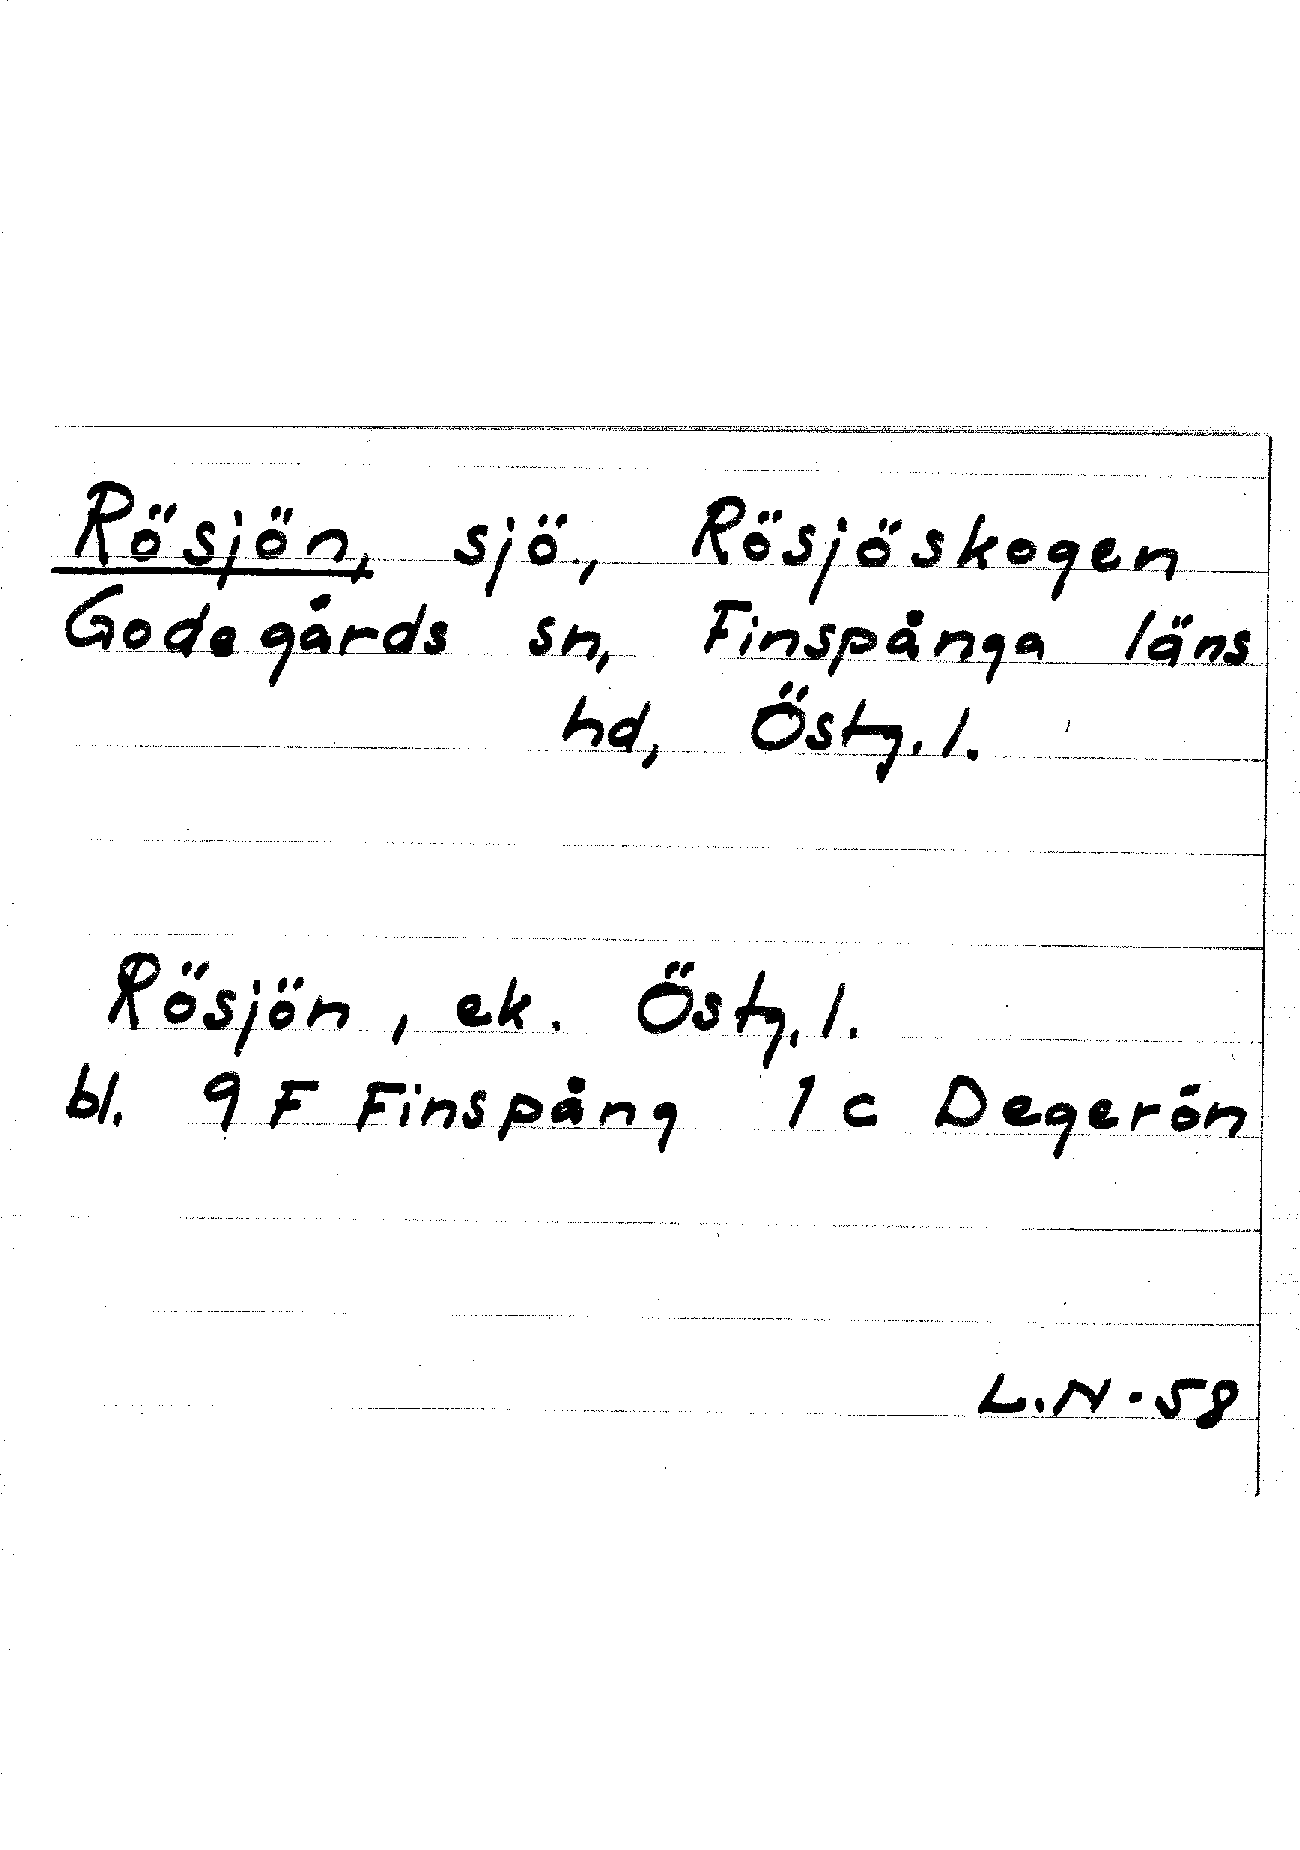 Rösjön, sjö, Rösjöskogen
Godegårds sn, Finspånga läns
hd, Östg. l.
Rösjön, ek. Östg. l.
bl. 9 F Finspång 1 c Degerön
L.N. 58